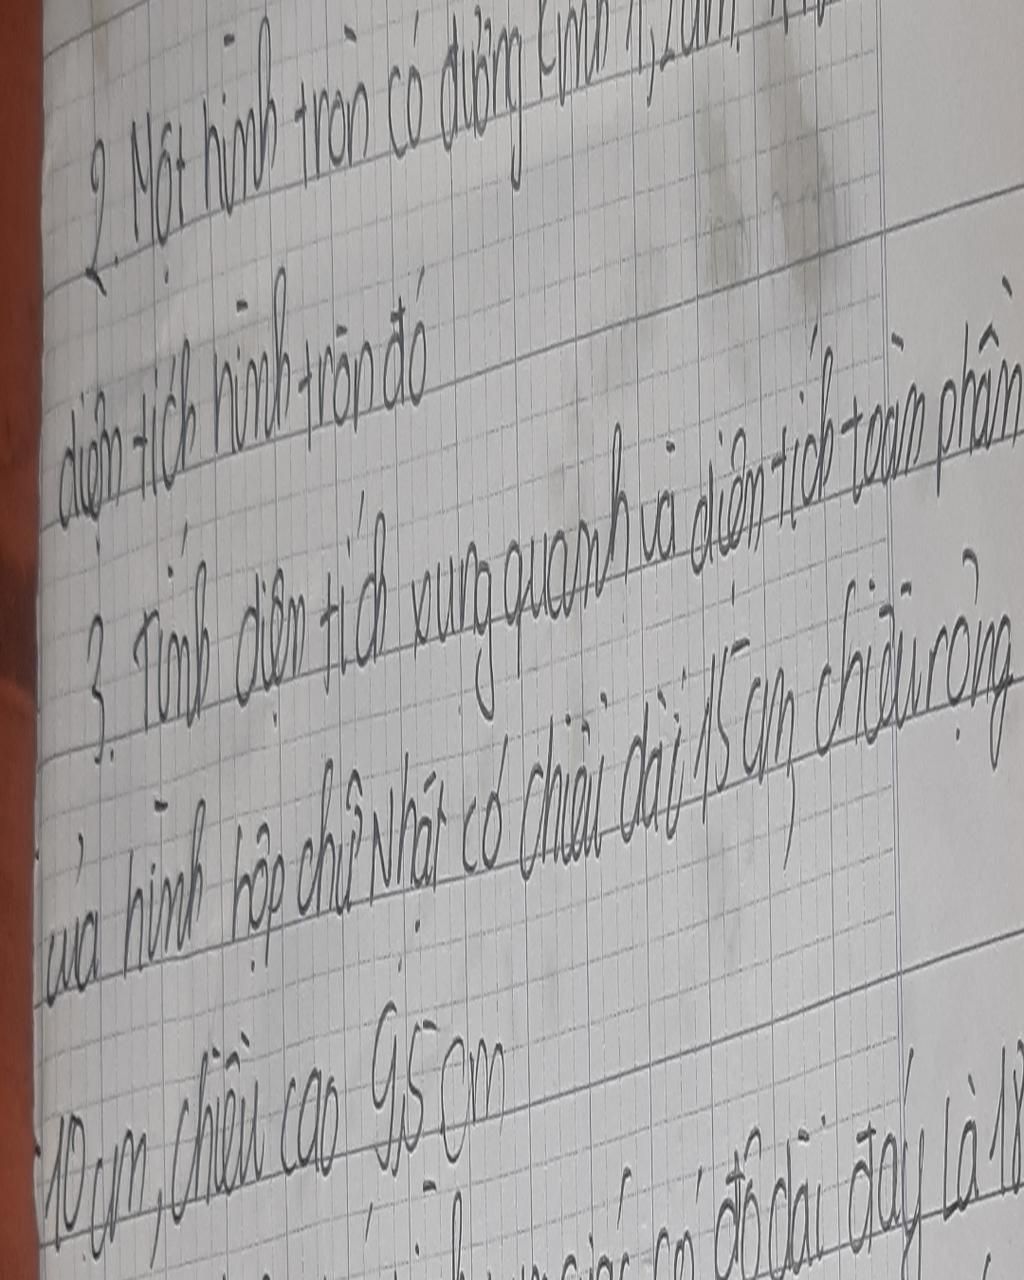 2. Một hình tròn có đường kính 1,2cm.
diện tích hình tròn đó
3. Tính diện tích xung quanh và diện tích toàn phần
của hình hộp chữ Nhật có chiều dài 15 cm, chiều rộng
10 cm, chiều cao 9,5 cm
có độ dài đáy là 18